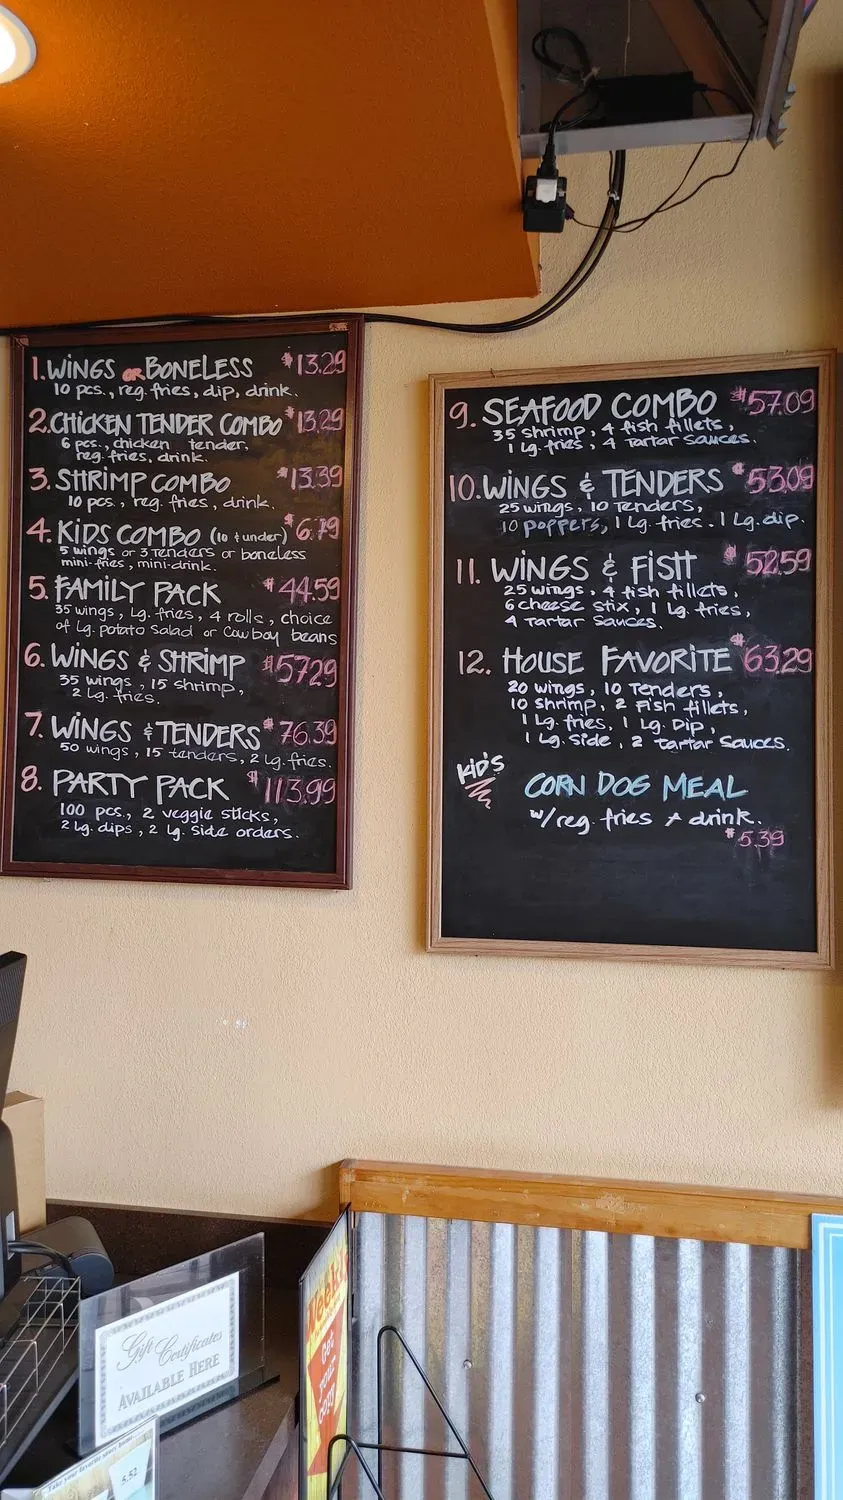 1. WINGS OR BONELESS $13.29
10 pcs., reg. fries, dip, drink.
2. CHICKEN TENDER COMBO $13.29
6 pcs., chicken tender,
reg. fries, drink.
3. SHRIMP COMBO $13.39
10 pcs., reg. fries, drink.
4. KIDS COMBO (10 & under) $6.79
5 wings or 3 Tenders or boneless
mini-fries, mini-drink.
5. FAMILY PACK $44.59
35 wings, Lg. fries, 4 rolls, choice
of Lg. potato Salad or Cowboy beans
6. WINGS & SHRIMP $57.29
35 wings, 15 shrimp,
2 Lg. fries.
7. WINGS & TENDERS $76.39
50 wings, 15 tenders, 2 Lg. fries.
8. PARTY PACK $113.99
100 pcs., 2 veggie sticks,
2 Lg. dips, 2 Lg. Side orders.
9. SEAFOOD COMBO $57.09
35 shrimp, 4 fish fillets,
1 Lg. fries, 4 Tartar Sauces.
10. WINGS & TENDERS $53.09
25 wings, 10 Tenders,
10 poppers, 1 Lg. fries. 1 Lg. dip.
11. WINGS & FISH $52.59
25 wings, 4 fish fillets,
6 cheese stix, 1 Lg. fries,
4 Tartar Sauces.
12. HOUSE FAVORITE $63.29
20 wings, 10 Tenders,
10 Shrimp, 2 Fish fillets,
1 Lg. fries, 1 Lg. Dip,
1 Lg. Side, 2 Tartar Sauces.
KID'S CORN DOG MEAL
w/reg. fries + drink.
$5.39
Gift Certificates
AVAILABLE HERE
Get
your
Take your favorite
5.52